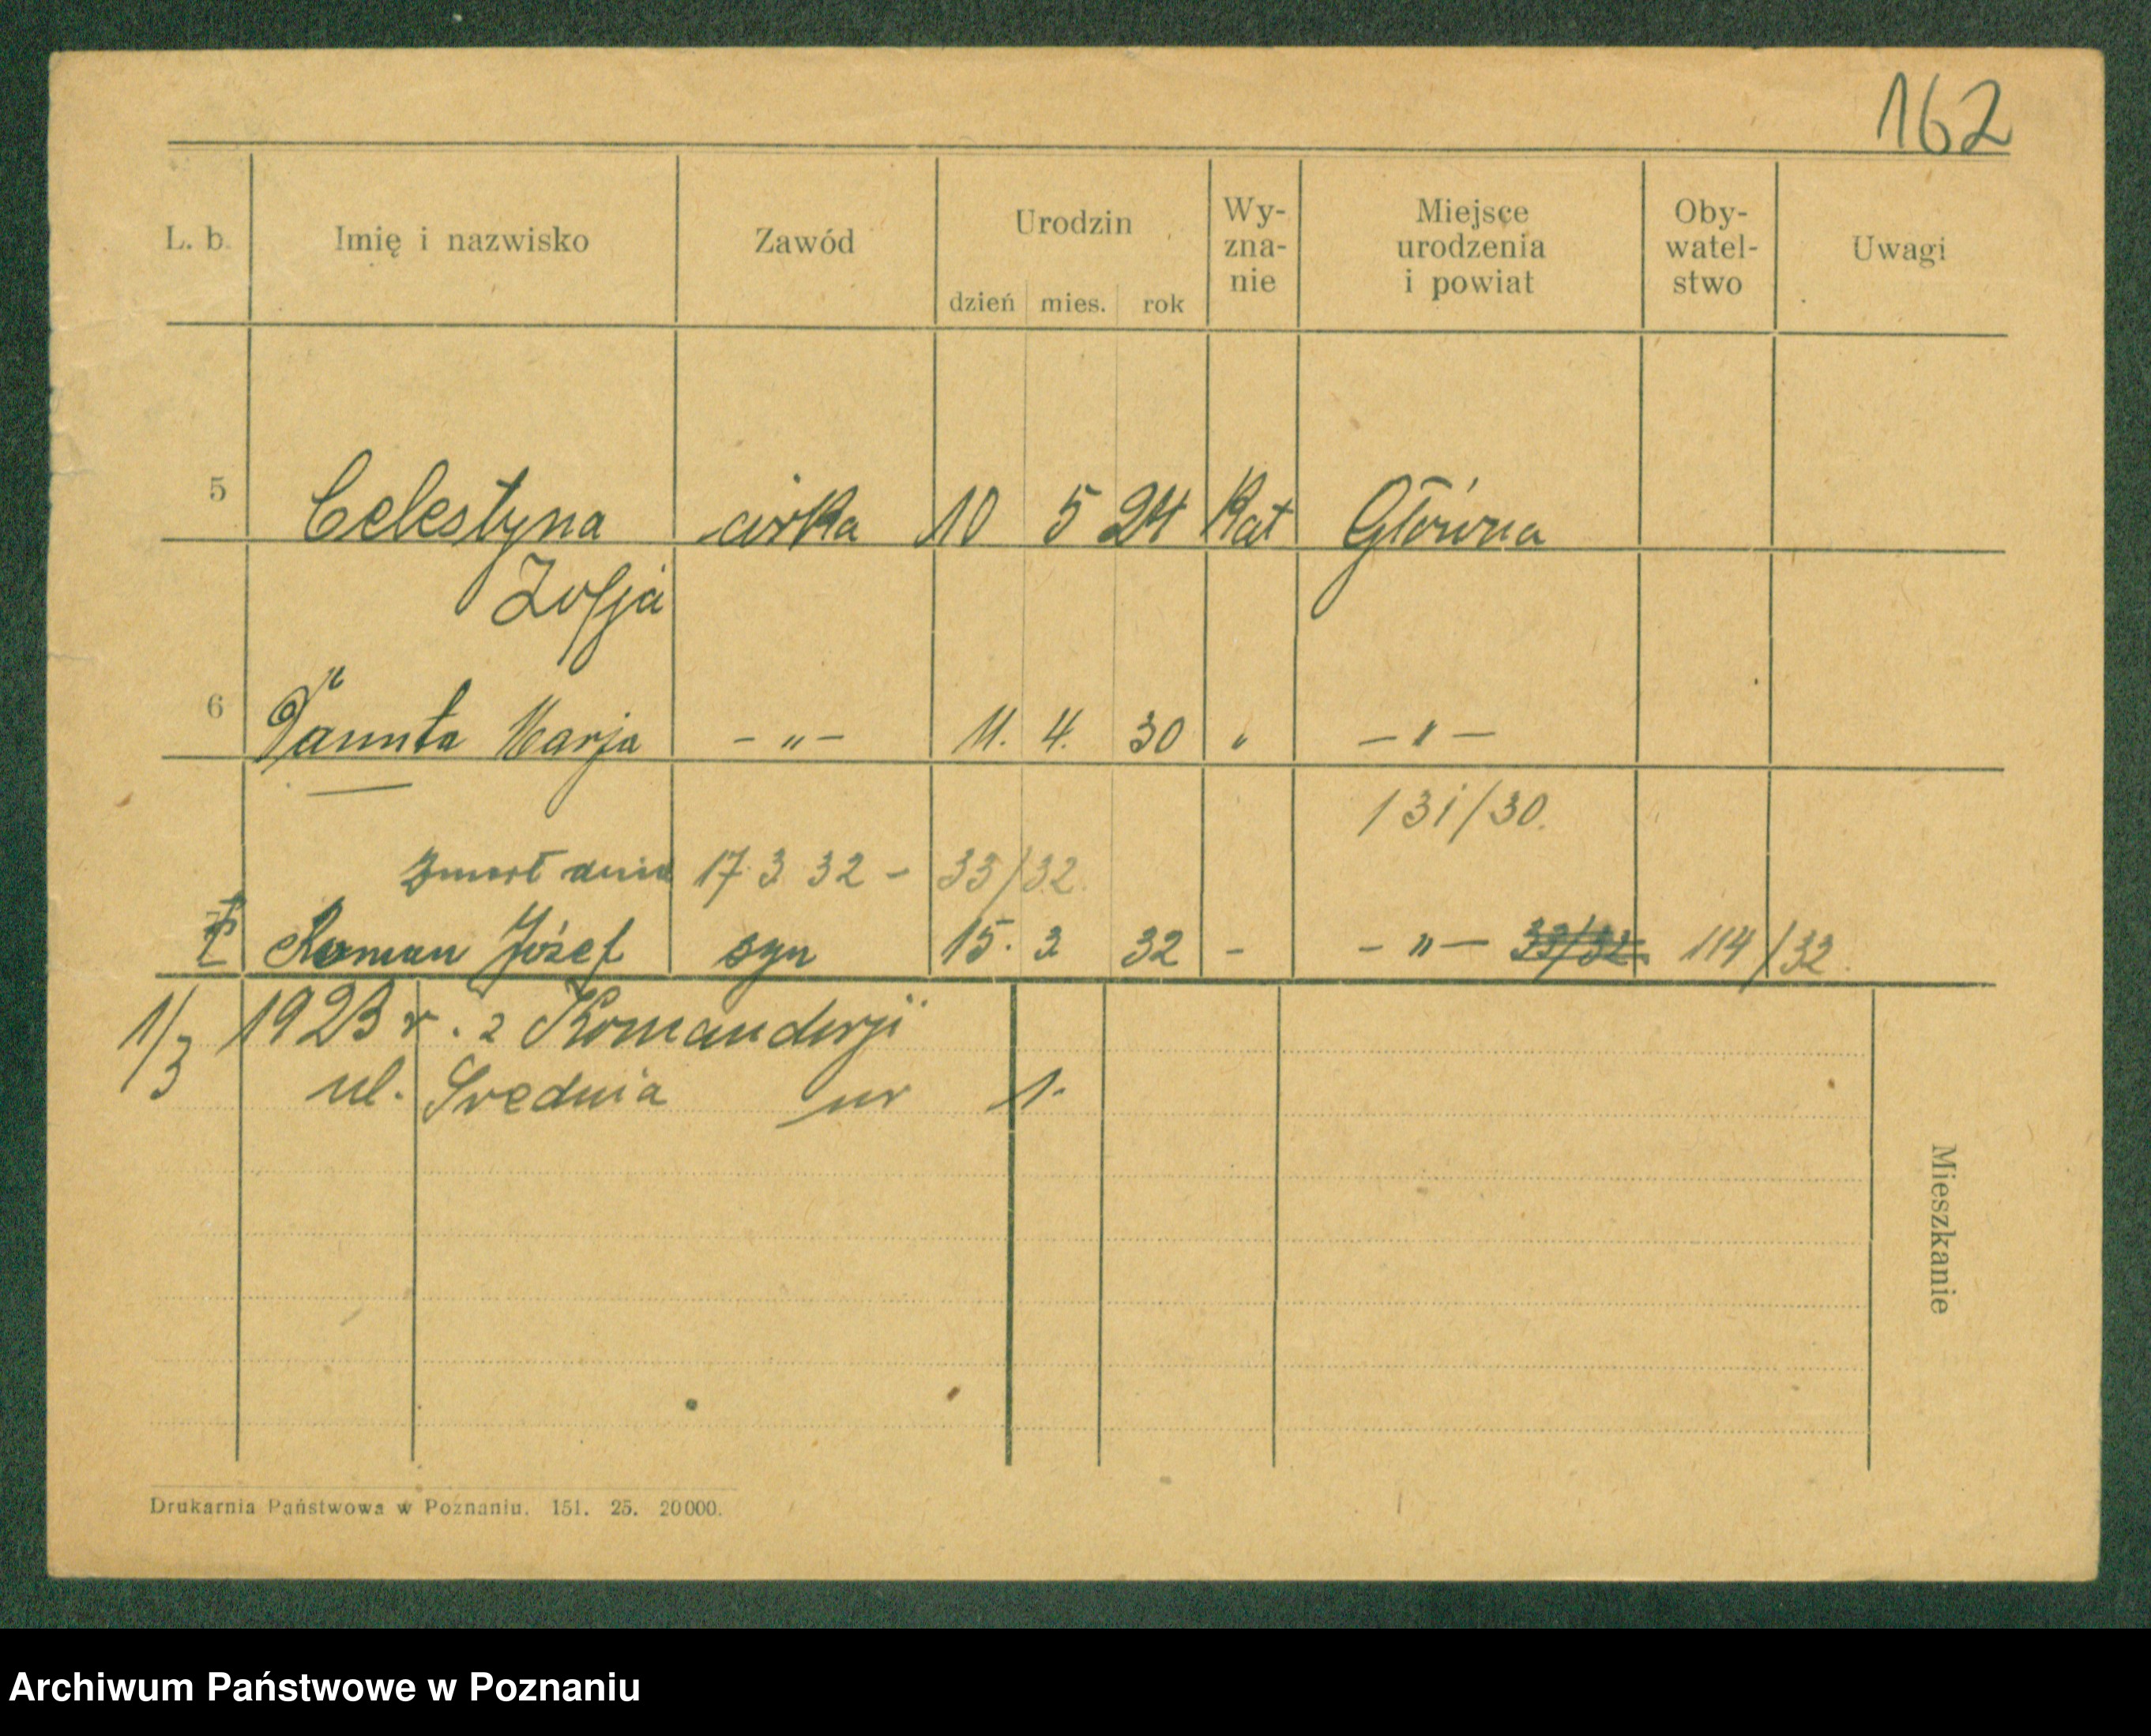 162
L. b. Imię i nazwisko Zawód Urodzin Wy- Miejsce Oby- Uwagi
zna- urodzenia watel-
dzień mies. rok nie i powiat stwo
5 Celestyna córka 10 5 24 Kat Główna
Zofja
6 Danuta Marja – „ – 11. 4. 30 „ – „ –
131/30.
Zmarł dnia 17 3 32 – 33/32.
7 Roman Józef syn 15. 3 32 – – „ – 33/32. 114/32.
1/3 1923 r. z Komanderji
ul. Średnia nr 1.
Mieszkanie
Drukarnia Państwowa w Poznaniu. 151. 25. 20000.
Archiwum Państwowe w Poznaniu